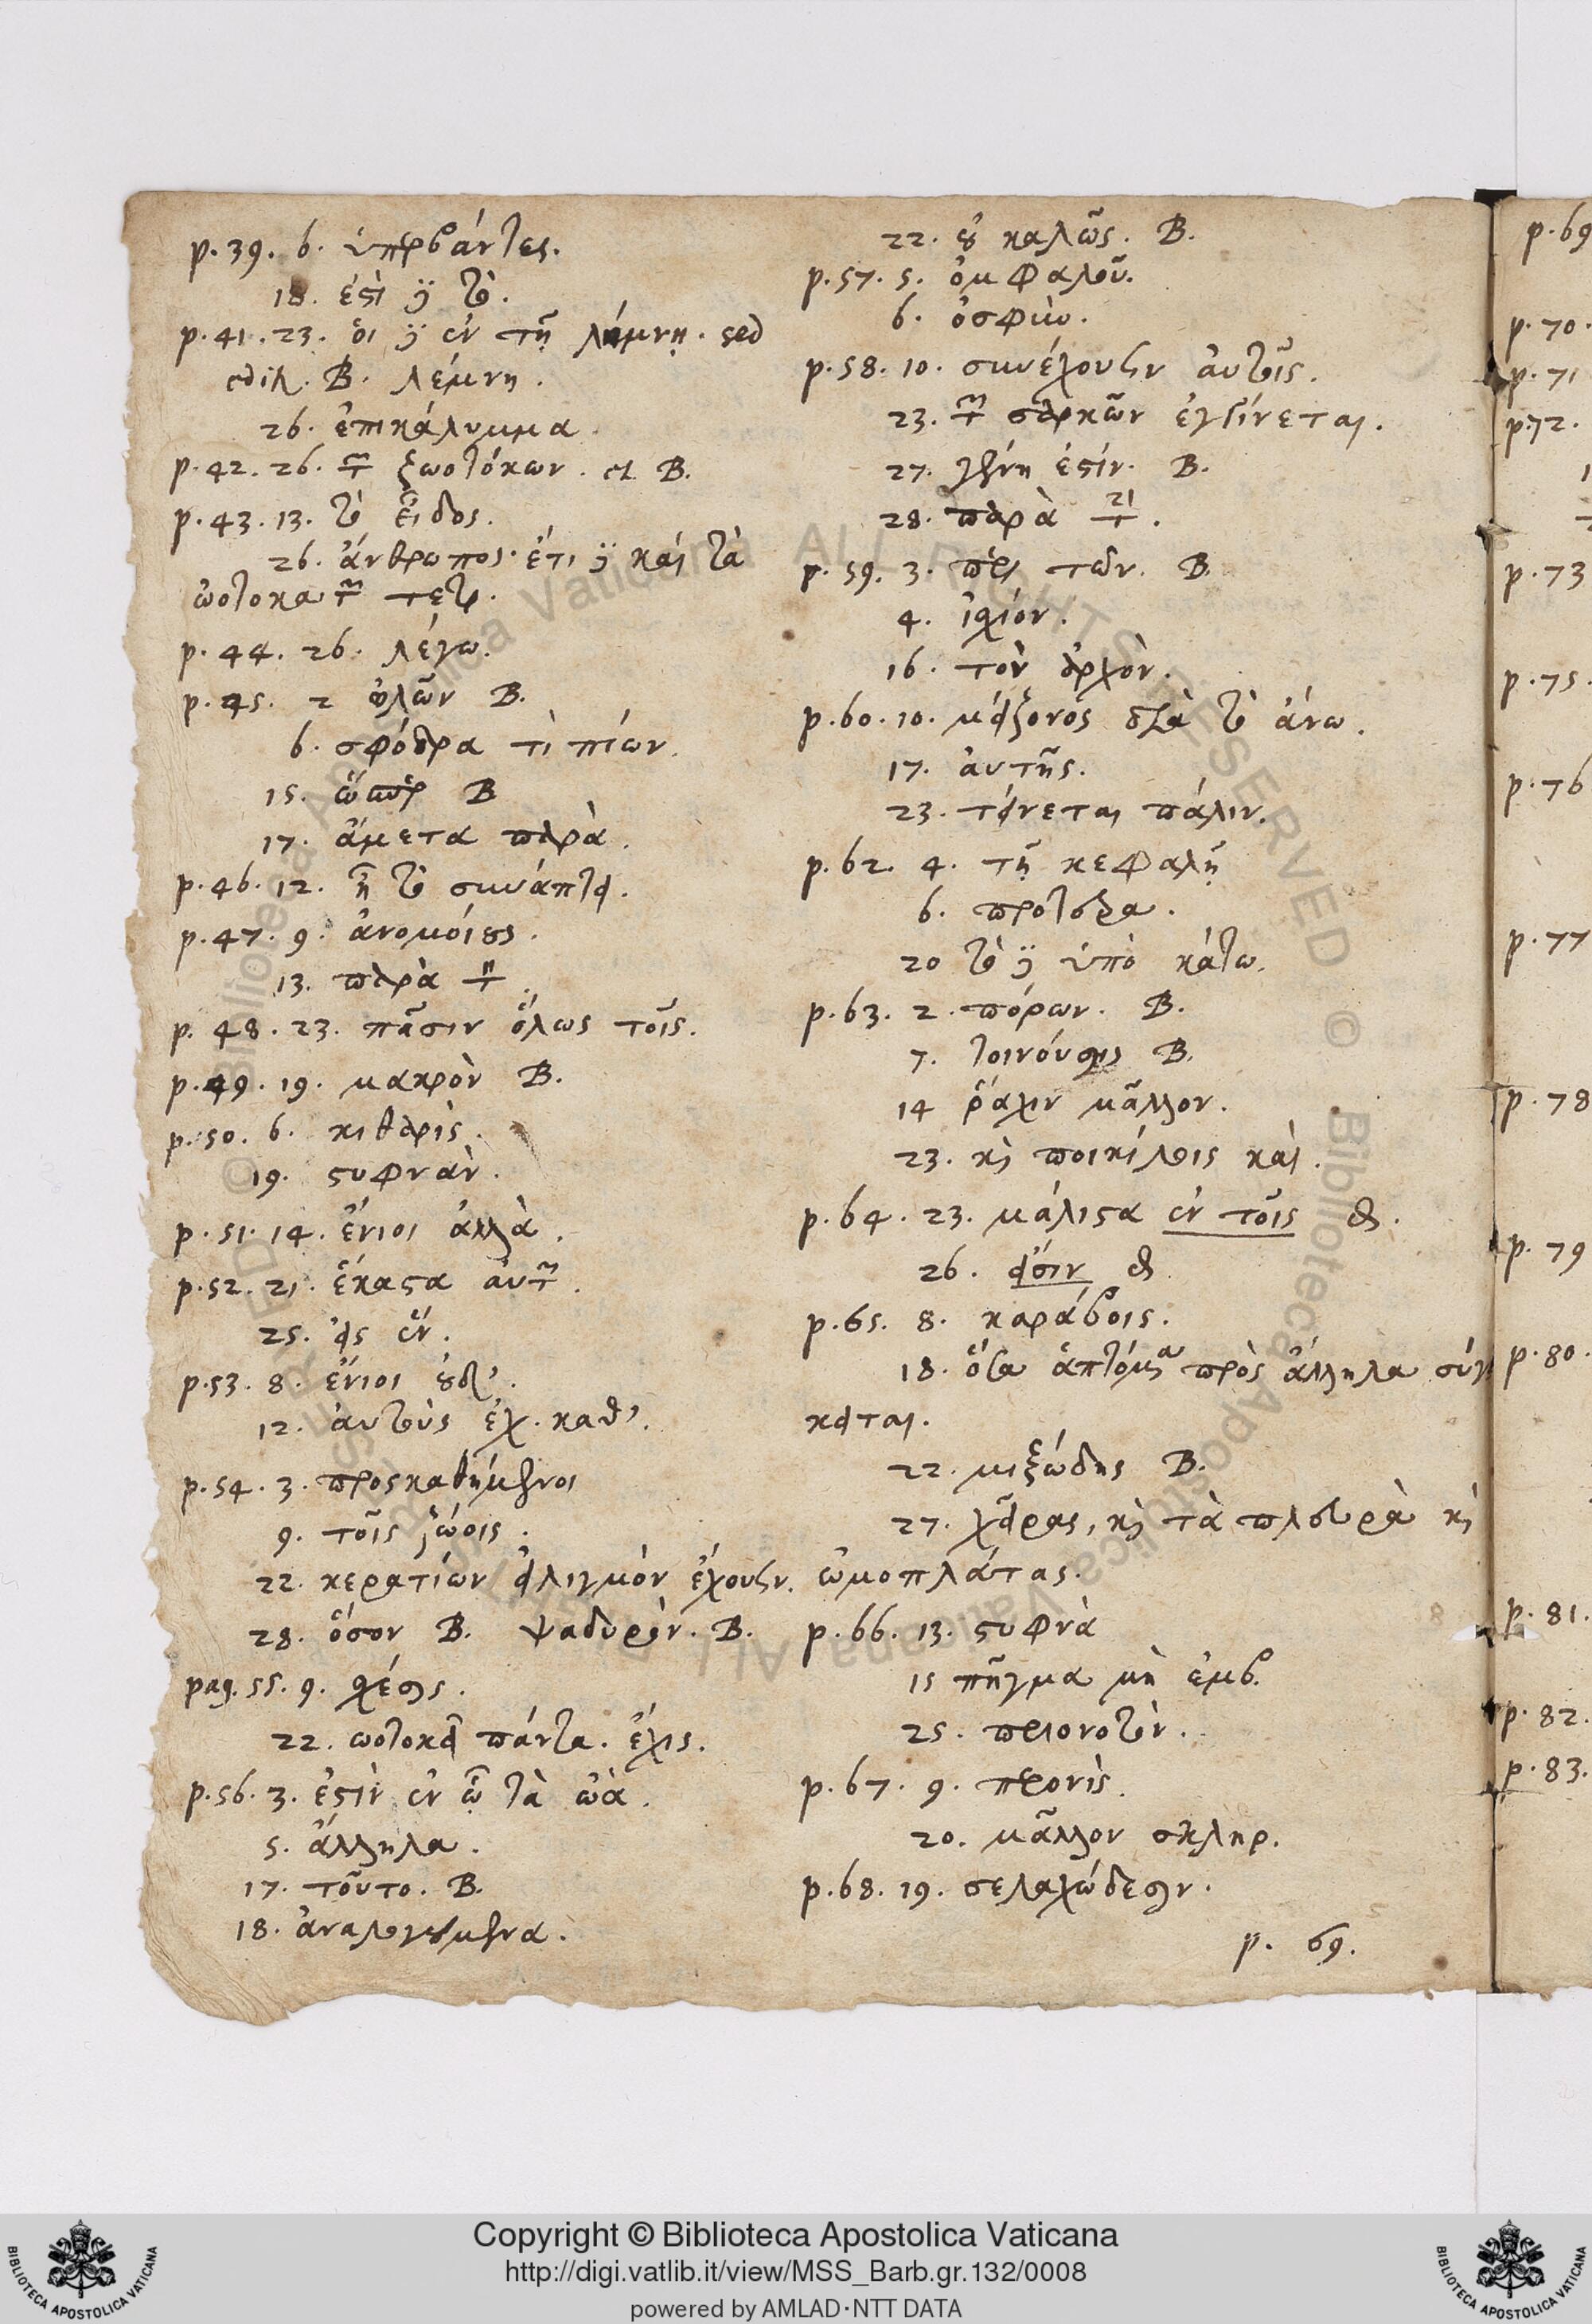 p. 39. 6. ὑπερβάντες.
18. ἐστὶ γὰρ τὸ.
p. 41. 23. ὁι γὰρ ἐν τῇ λίμνῃ. sed
edit. B. λέμνη.
26. ἐπικάλυμμα.
p. 42. 26. τῶν ζωοτόκων. et B.
p. 43. 13. τὸ εἶδος.
26. ἄνθρωπος· ἔτι γὰρ καὶ τὰ
ὠοτοκα τῶν τετρ.
p. 44. 26. λέγω.
p. 45. 2 B.
6. σφόδρα τὶ πίων.
15. ὥσπερ B
17. ἄμετα παρὰ.
p. 46. 12. ἢ τὸ συνάπτει.
p. 47. 9. ἀνομοίους.
13. παρὰ τὴν.
p. 48. 23. πᾶσιν ὅλως τοῖς.
p. 49. 19. μακρὸν B.
p. 50. 6. κιθαρὶς.
19. στυφνὰν.
p. 51. 14. ἔνιοι ἀλλὰ.
p. 52. 21. ἕκαστα αὐτῶν.
25. εἰς ἓν.
p. 53. 8. ἔνιοι οὐδ'.
12. ἀυτοὺς ἐχ. καθ'.
p. 54. 3. προσκαθήμενοι
9. τοῖς ζώοις.
22. κερατίων εἱλιγμὸν ἔχουσιν.
28. ὅσον B. ψαδυρὸν. B.
pag. 55. 9. σχέσις.
22. ωοτοκεῖ πάντα. ἔχις.
p. 56. 3. ἐστὶν ἐν ᾧ τὰ ὠὰ.
5. ἄλληλα.
17. τοῦτο. B.
18. ἀναλογούμενα.
22. οὐ καλῶς. B.
p. 57. 5. ὀμφαλοῦ.
6. ὀσφὺν.
p. 58. 10. συνέχουσιν ἀυτοῖς.
23. τῶν σαρκῶν ἐγγίνεται.
27. γένη ἐστίν. B.
28. παρὰ
p. 59. 3. περὶ τῶν. B.
4. ἰσχίον.
16. τὸν ἀρχὸν.
p. 60. 10. μείζονός διὰ τὸ ἄνω.
17. ἀυτῆς.
23. τείνεται πάλιν.
p. 62. 4. τῇ κεφαλῇ
6. πρότερα.
20 τὸ γὰρ ὑπὸ κάτω.
p. 63. 2. πόρων. B.
7. B.
14 ῥάχιν μᾶλλον.
23. καὶ ποικίλοις καὶ.
p. 64. 23. μάλιστα ἐν τοῖς
26. εἰσιν
p. 65. 8. καράβοις.
18. ὅσα ἁπτόμενα πρὸς ἄλληλα σύγ
κειται.
22. μιξώδης B.
27. χεῖρας, καὶ τὰ πλευρὰ καὶ
ὠμοπλάτας.
p. 66. 13. στυφνὰ
15 πῆγμα μὴ ἐμβ.
25. πριονοτὸν.
p. 67. 9. περονὶς.
20. μᾶλλον σκληρ.
p. 68. 19. σελαχώδεσιν.
p. 69.
p. 69
p. 70.
p. 71
p. 72.
p. 73
p. 75.
p. 76
p. 77
p. 78
p. 79
p. 80.
p. 81.
p. 82.
p. 83.
© Biblioteca Apostolica Vaticana ALL RIGHTS RESERVED
Copyright © Biblioteca Apostolica Vaticana
http://digi.vatlib.it/view/MSS_Barb.gr.132/0008
powered by AMLAD·NTT DATA
BIBLIOTECA APOSTOLICA VATICANA
BIBLIOTECA APOSTOLICA VATICANA